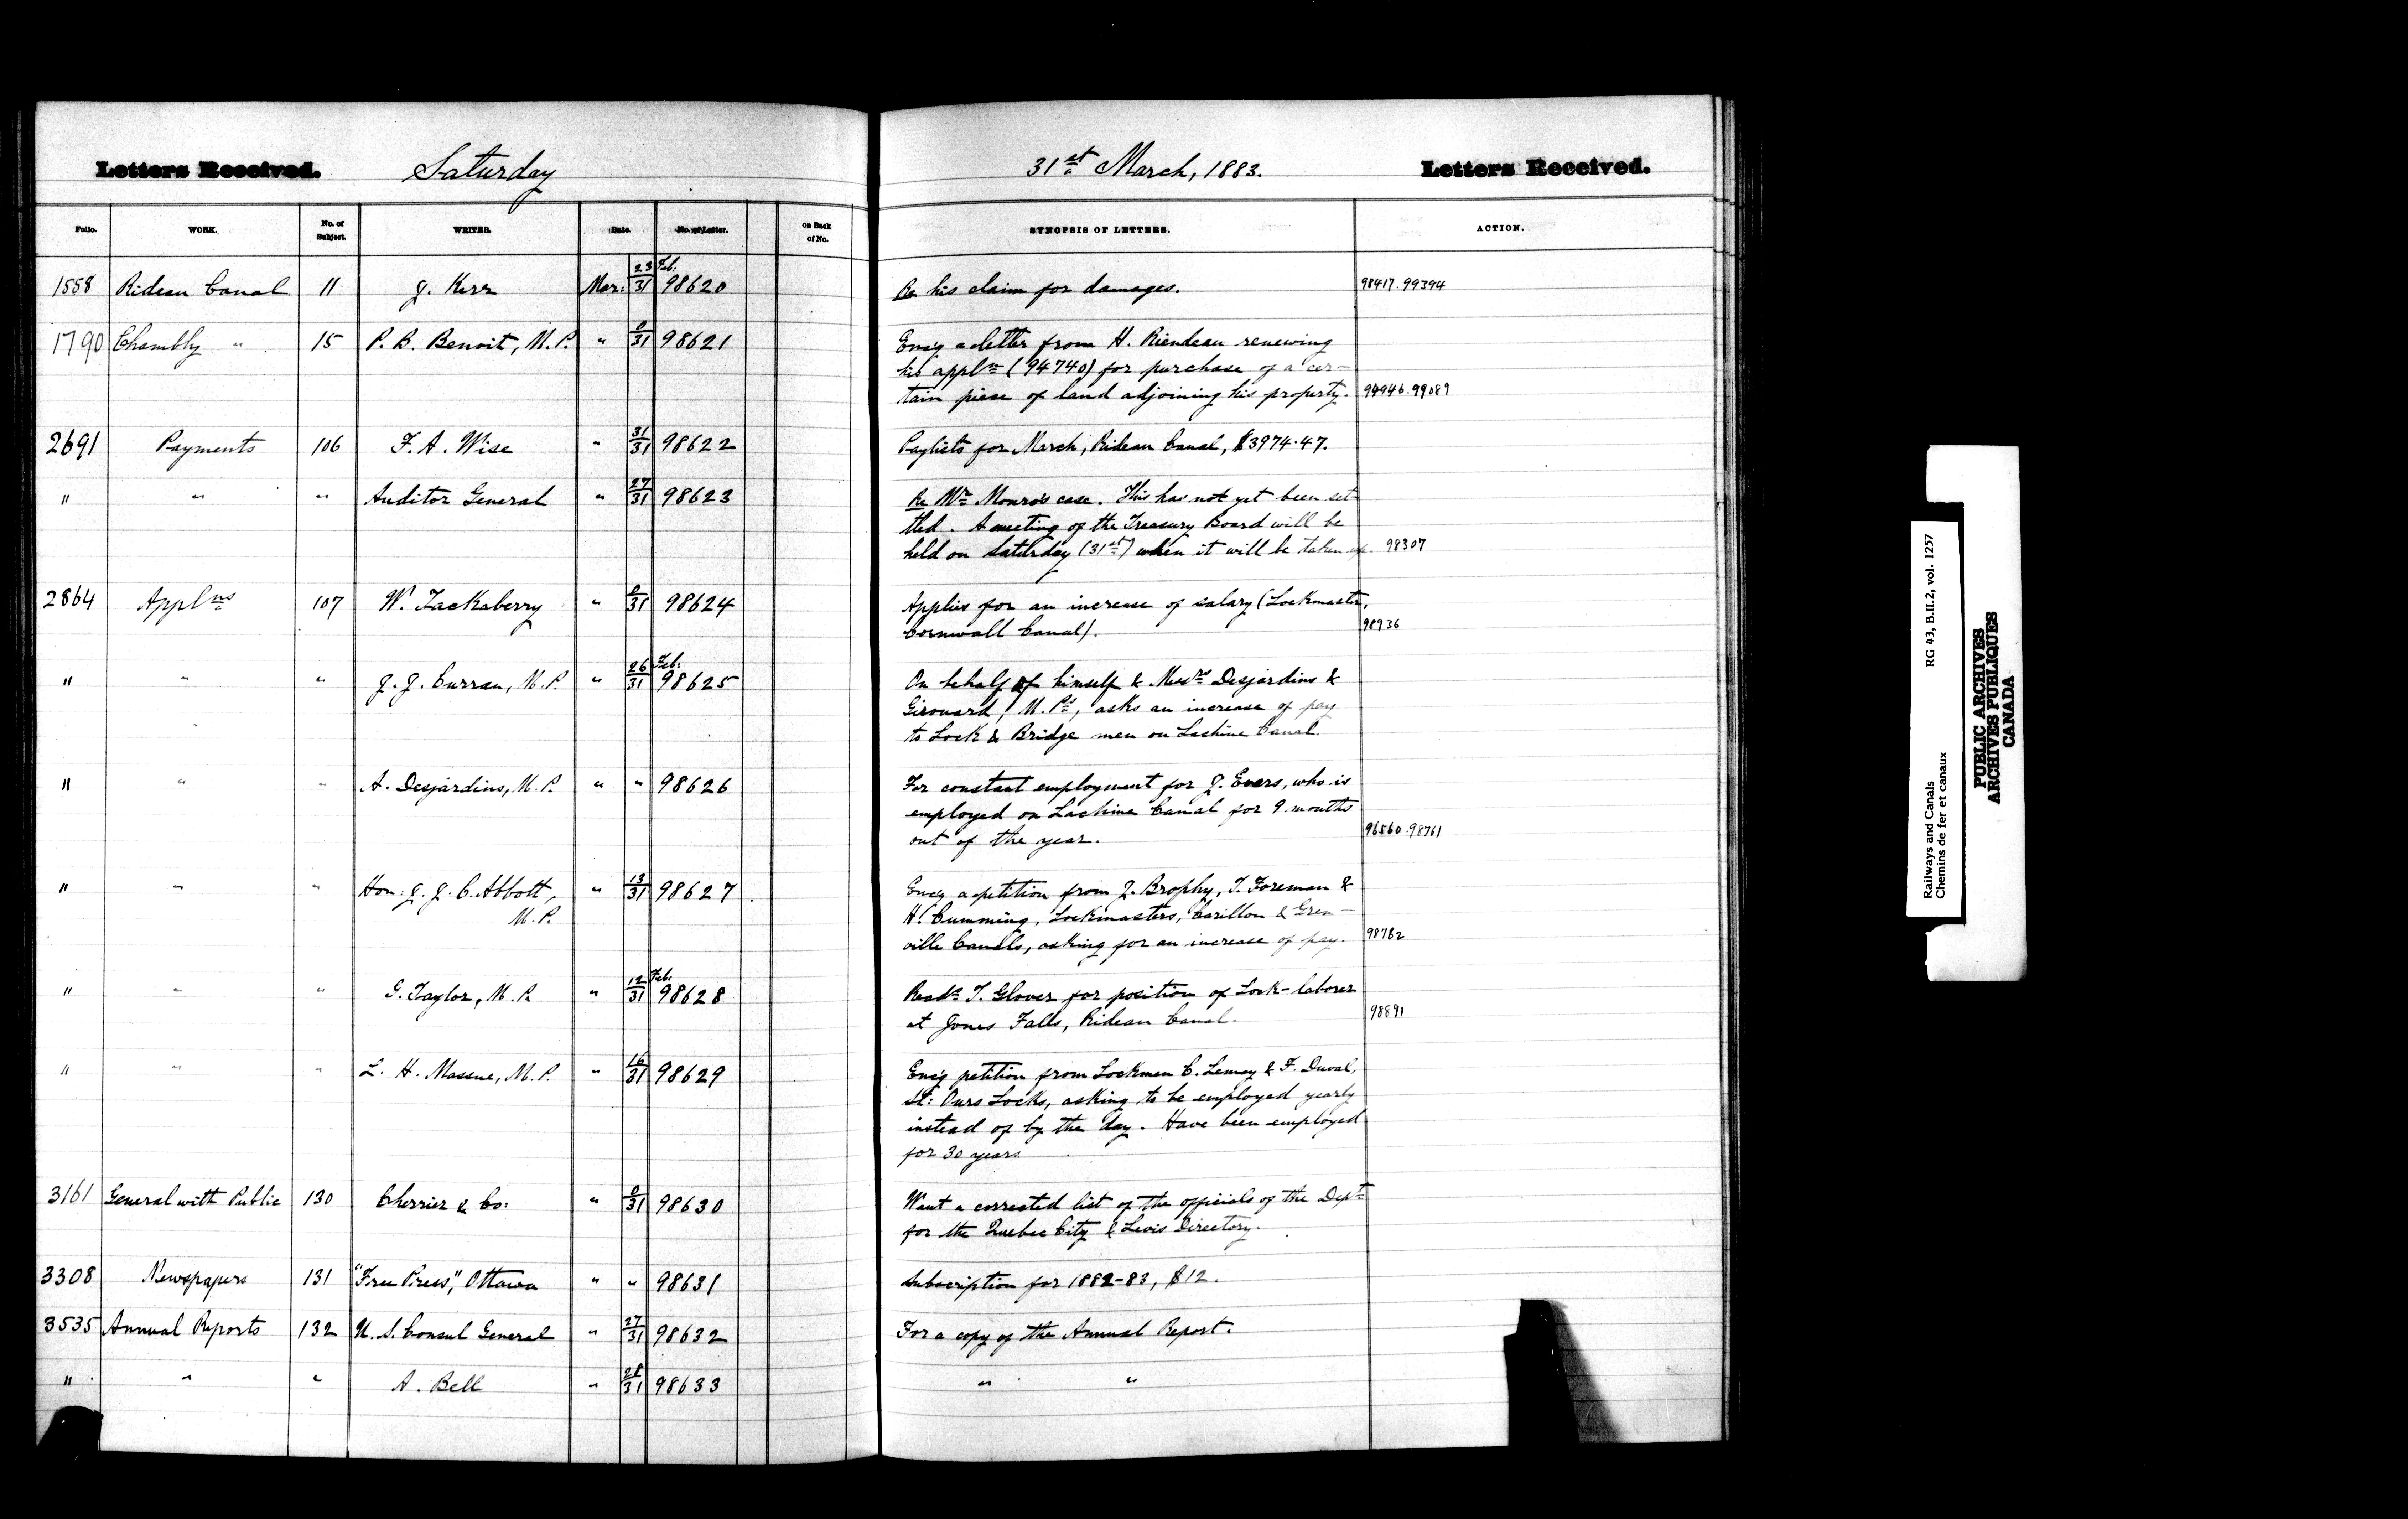 Letters Received. Saturday 31st March, 1883. Letters Received.
Folio. WORK. No. of Subject. WRITER. Date. No. of Letter. on Back of No. SYNOPSIS OF LETTERS. ACTION.
1558 Rideau Canal 11 J. Kerr Mar: 23/31 Feb: 98620 Re his claim for damages. 98417. 99394
1790 Chambly " 15 P. B. Benoit, M.P. " 0/31 98621 Encg a letter from H. Riendeau renewing
his appln (94740) for purchase of a cer-
tain piece of land adjoining his property. 94946. 99089
2691 Payments 106 F. A. Wise " 31/31 98622 Paylists for March, Rideau Canal, $3974.47.
" " " Auditor General " 27/31 98623 Re Mr Monro's case. This has not yet been set-
tled. A meeting of the Treasury Board will be
held on Saturday (31st) when it will be taken up. 98307
2864 Applns 107 W. Tackaberry " 0/31 98624 Applies for an increase of salary (Lockmaster,
Cornwall Canal). 98936
" " " J. J. Curran, M.P. " 26/31 Feb: 98625 On behalf of himself & Messrs Desjardins &
Girouard, M.Ps, asks an increase of pay
to Lock & Bridge men on Lachine Canal.
" " " A. Desjardins, M.P. " " 98626 For constant employment for J. Evers, who is
employed on Lachine Canal for 9 months
out of the year. 96560. 98761
" " " Hon: J. J. C. Abbott, " 13/31 98627 Encg a petition from J. Brophy, T. Foreman &
M.P. H. Cumming, Lockmasters, Carillon & Gren-
ville Canals, asking for an increase of pay. 98762
" " " G. Taylor, M.P. " 12/31 Feb: 98628 Recds T. Glover for position of Lock-laborer
at Jones Falls, Rideau Canal. 98891
" " " L. H. Massue, M.P. " 16/31 98629 Encg petition from Lockmen C. Lemay & F. Duval,
St: Ours Locks, asking to be employed yearly
instead of by the day. Have been employed
for 30 years
3161 General with Public 130 Cherrier & Co: " 0/31 98630 Want a corrected list of the officials of the Dept
for the Quebec City & Levis Directory.
3308 Newspapers 131 "Free Press", Ottawa " " 98631 Subscription for 1882-83, $12.
3535 Annual Reports 132 U. S. Consul General " 27/31 98632 For a copy of the Annual Report.
" " " A. Bell " 28/31 98633 " "
Railways and Canals RG 43, B.II.2, vol. 1257
Chemins de fer et canaux
PUBLIC ARCHIVES
ARCHIVES PUBLIQUES
CANADA